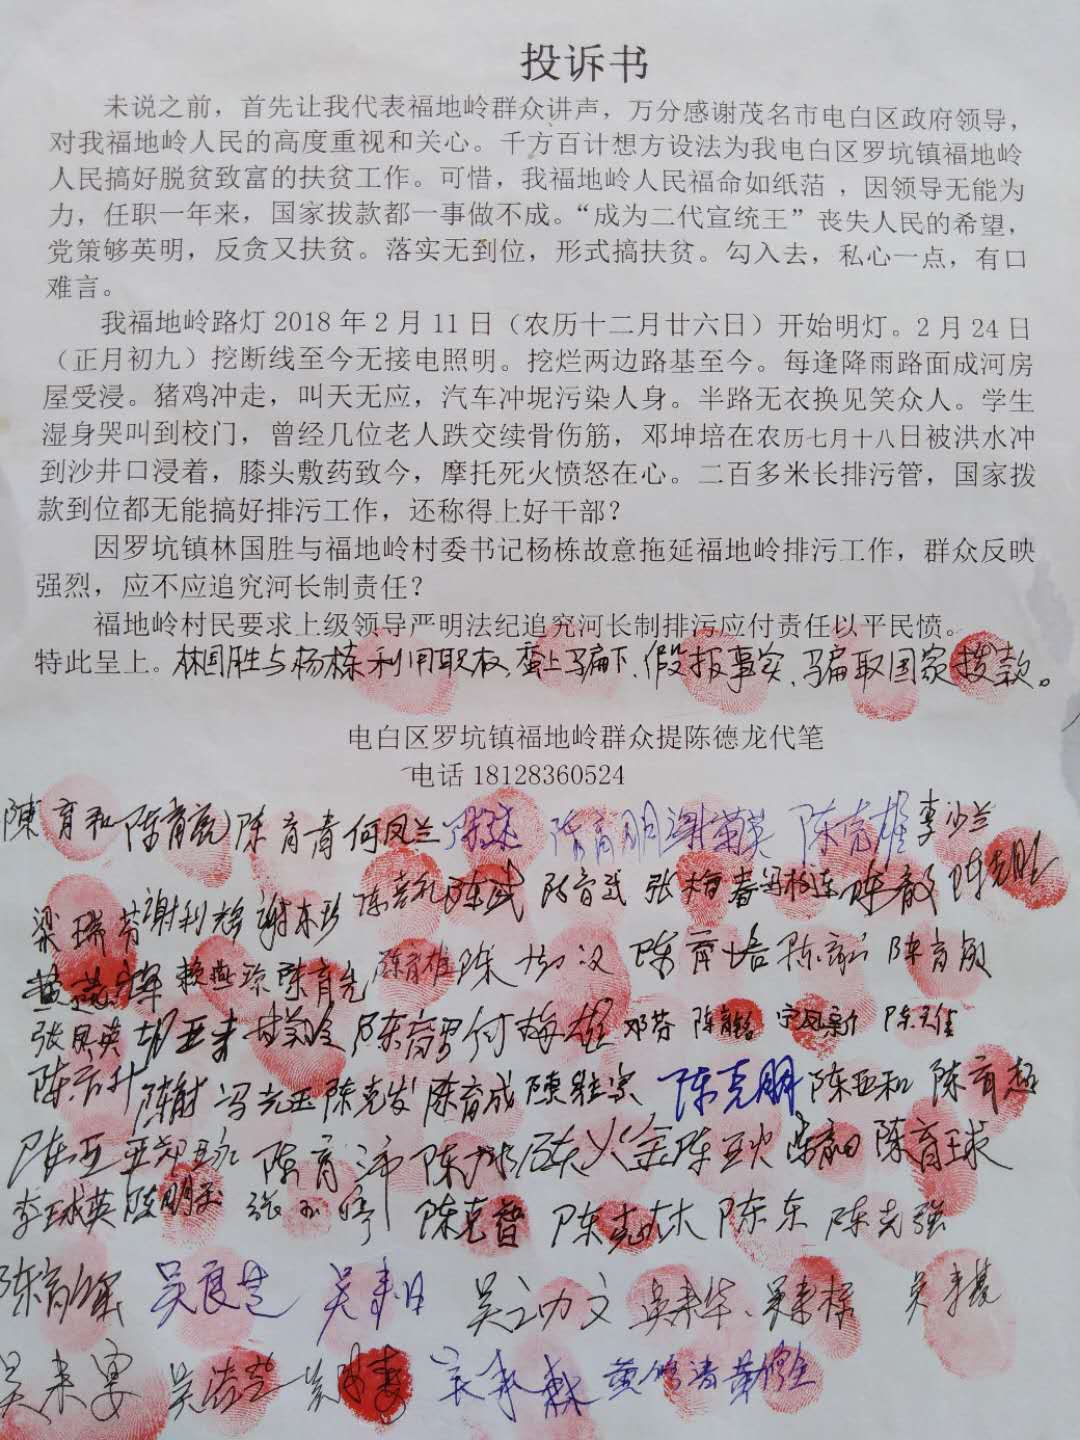 投诉书
未说之前，首先让我代表福地岭群众讲声，万分感谢茂名市电白区政府领导，
对我福地岭人民的高度重视和关心。千方百计想方设法为我电白区罗坑镇福地岭
人民搞好脱贫致富的扶贫工作。可惜，我福地岭人民福命如纸萡，因领导无能为
力，任职一年来，国家拨款都一事做不成。“成为二代宣统王”丧失人民的希望，
党策够英明，反贪又扶贫。落实无到位，形式搞扶贫。勾入去，私心一点，有口
难言。
我福地岭路灯 2018 年 2 月 11 日（农历十二月廿六日）开始明灯。2 月 24 日
（正月初九）挖断线至今无接电照明。挖烂两边路基至今。每逢降雨路面成河房
屋受浸。猪鸡冲走，叫天无应，汽车冲坭污染人身。半路无衣换见笑众人。学生
湿身哭叫到校门，曾经几位老人跌交续骨伤筋，邓坤培在农历七月十八日被洪水冲
到沙井口浸着，膝头敷药致今，摩托死火愤怒在心。二百多米长排污管，国家拨
款到位都无能搞好排污工作，还称得上好干部？
因罗坑镇林国胜与福地岭村委书记杨栋故意拖延福地岭排污工作，群众反映
强烈，应不应追究河长制责任？
福地岭村民要求上级领导严明法纪追究河长制排污应付责任以平民愤。
特此呈上。林国胜与杨栋利用职权，蛮上骗下、假报事实、骗取国家拨款。
电白区罗坑镇福地岭群众提陈德龙代笔
电话 18128360524
陳育和 陈育 陈育青 何凤兰 陈育朋 谢菊英 陈克雄 李沙兰
梁瑞芬 谢利辉 谢木珍 陈成 陈育武 张梅春 冯板连 陈毅 陈克胜
赖燕琼 陈育先 陈育雄 陈 陈育培 陈育 陈育殷
张凤英 胡亚来 何梅 邓芬 陈育铭
陈育升 陈射 冯亚 陈克发 陈育成 陈克朋 陈亚和 陈育超
陈亚 陈育沛 陈火金 陈亚火 陈育球
李球英 陈明 张 陈克哲 陈克大 陈东 陈克强
陈育 吴良芝 吴来日 吴文 吴来华 吴来
吴来 吴 黄修清